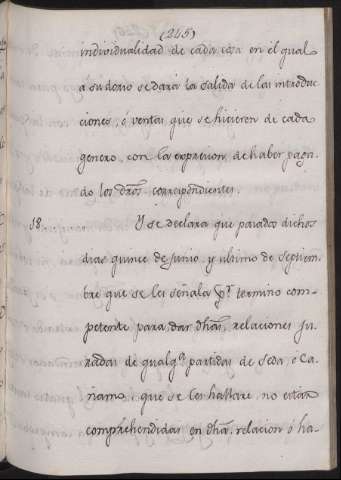 (245)
individualidad de cada cosa en el qual
a su dorso se dara la salida de las introduc
ciones, ó ventas que se hicieren de cada
genero, con la expresion de haber paga-
do los dros. correspondientes.
58. Y se declara que pasados dichos
dias quince de Junio, y ultimo de septiem-
bre que se les señala pr. termino com-
petente para dar dhas. relaciones ju-
radas de qualqa. partidas de seda, ó Ca-
ñamo, que se les hallare, no estar
comprehendidas en dha. relacion ó ha-